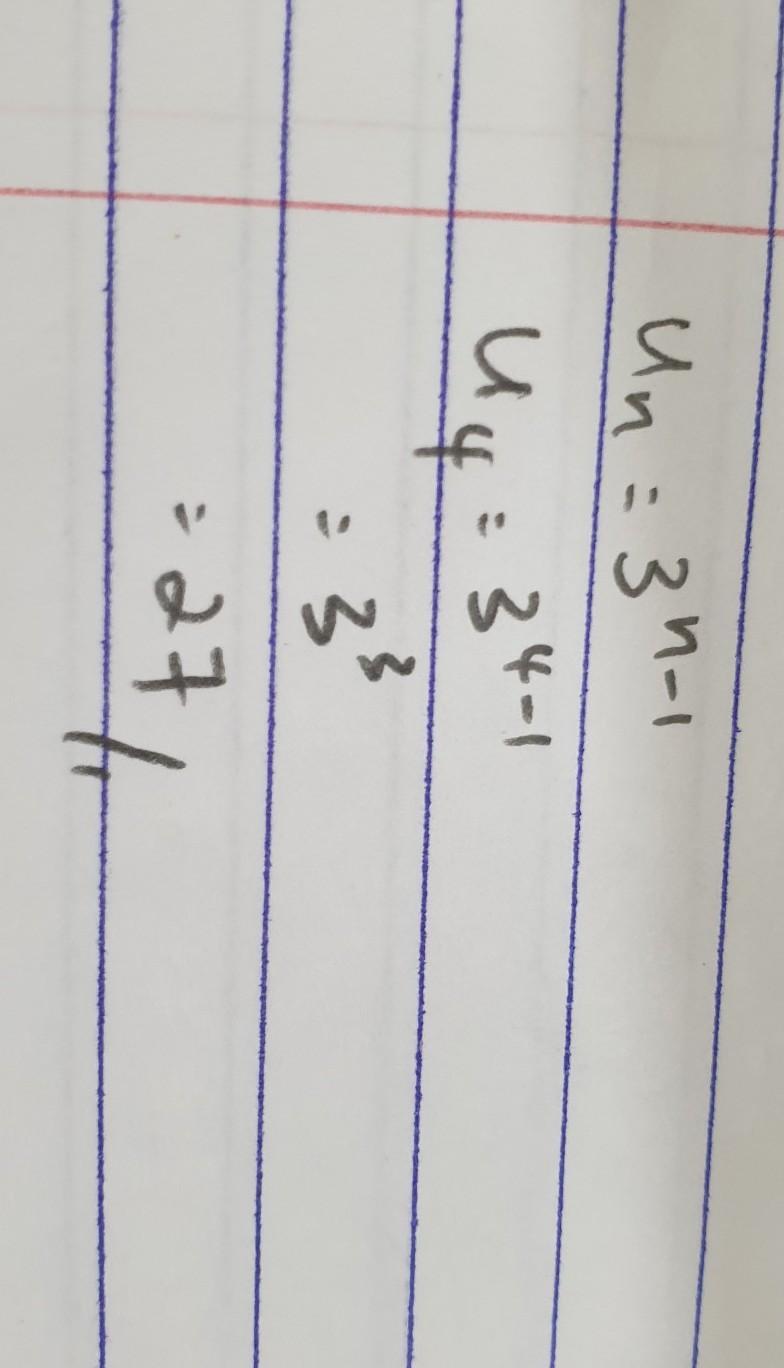 Un = 3^n-1
U4 = 3^4-1
= 3^3
= 27 //